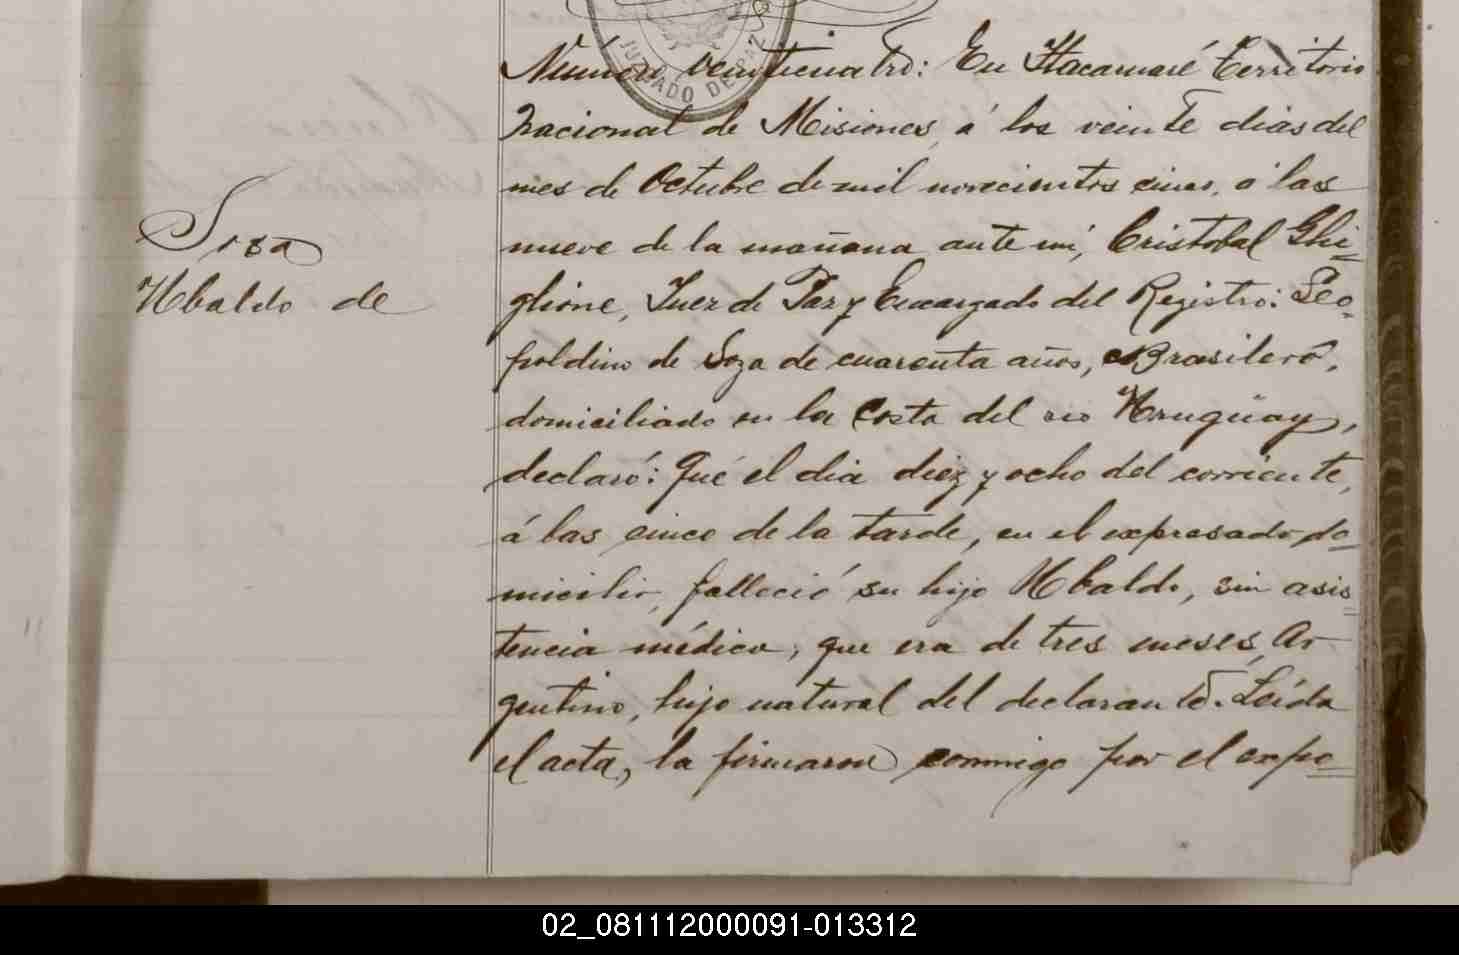 JUZGADO DE PAZ
Número veinticuatro: En Itacaruaré Territorio
Nacional de Misiones, á los veinte dias del
mes de Octubre de mil novecientos cinco, a las
nueve de la mañana ante mí, Cristobal Ghi=
glione, Juez de Paz y Encargado del Registro: Leo-
poldino de Soza de cuarenta años, Brasilero,
domiciliado en la Costa del rio Uruguay,
declaró: Qué el dia diez y ocho del corriente,
á las cinco de la tarde, en el expresado do-
micilio, falleció su hijo Ubaldo, sin asis=
tencia médica, que era de tres meses, Ar-
gentino, hijo natural del declarante. Leída
el acta, la firmaron conmigo por el expo=
Sosa
Ubaldo de
02_081112000091-013312